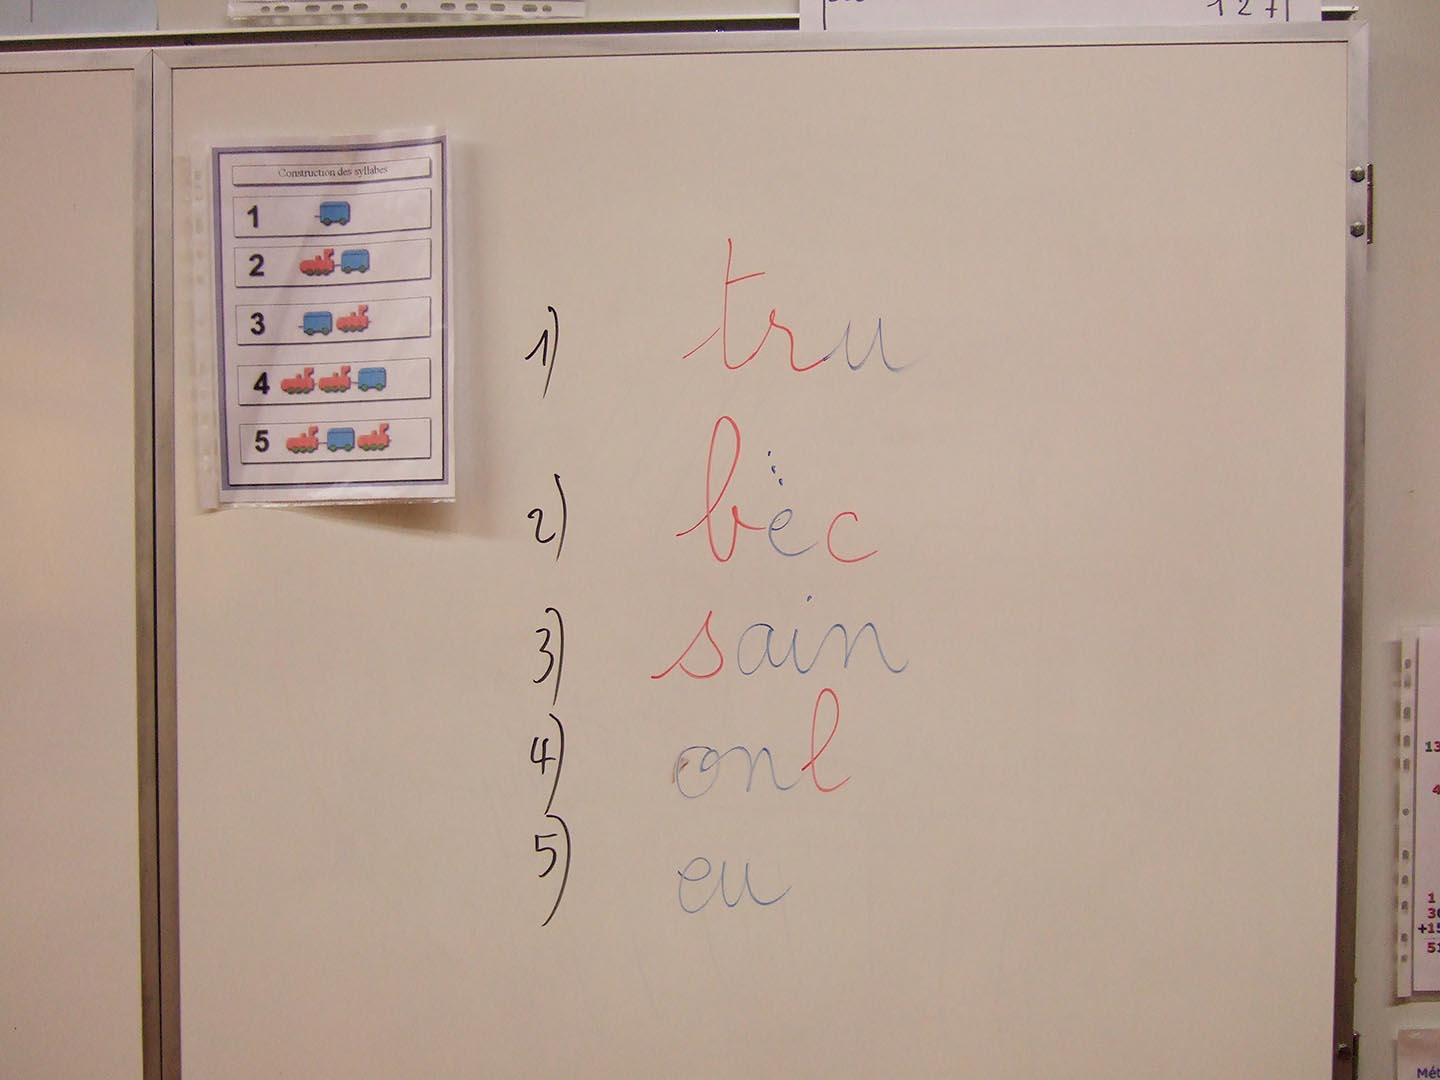 127
Construction des syllabes
1
2
3
4
5
1) tru
2) bëc
3) sain
4) onl
5) eu
13
4
1
30
+15
51
Mét